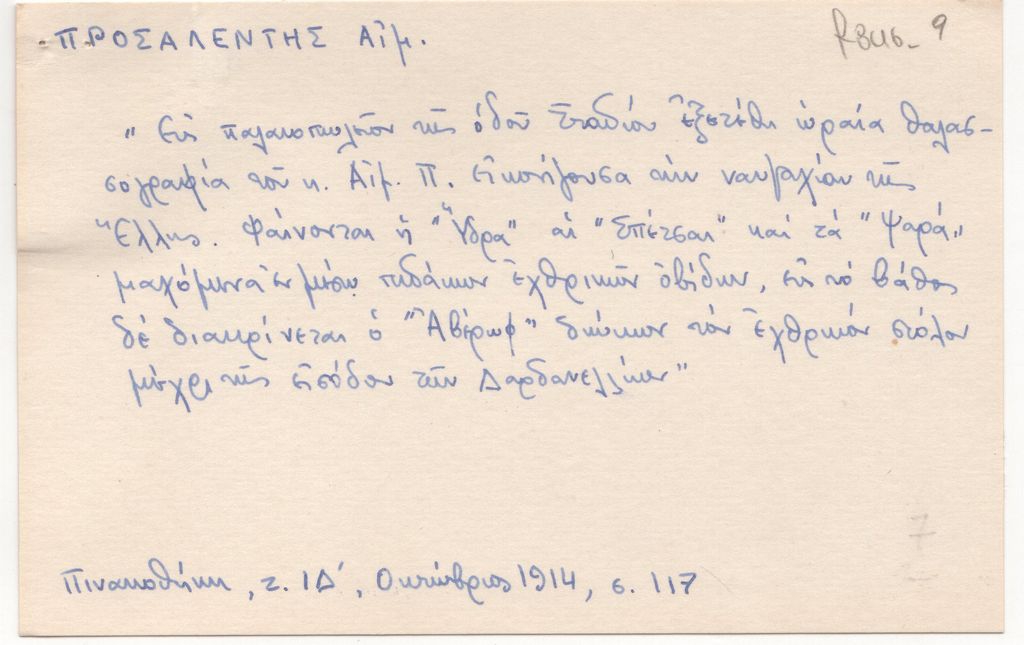 ΠΡΟΣΑΛΕΝΤΗΣ Αἰμ.
9
"Εἰς παλαιοπωλεῖον τῆς ὁδοῦ Σταδίου ἐξετέθη ὡραία θαλασ-
σογραφία τοῦ κ. Αἰμ. Π. εἰκονίζουσα τὴν ναυμαχίαν τῆς
Ἕλλης. Φαίνονται ἡ "Ὕδρα" αἱ "Σπέτσαι" καὶ τὰ "Ψαρά"
μαχόμενα ἐν μέσῳ πιδάκων ἐχθρικῶν ὀβίδων, εἰς τὸ βάθος
δὲ διακρίνεται ὁ "Ἀβέρωφ" διώκων τὸν ἐχθρικόν στόλον
μέχρι τῆς εἰσόδου τῶν Δαρδανελλίων"
7
Πινακοθήκη, τ. ΙΔ', Οκτώβριος 1914, σ. 117